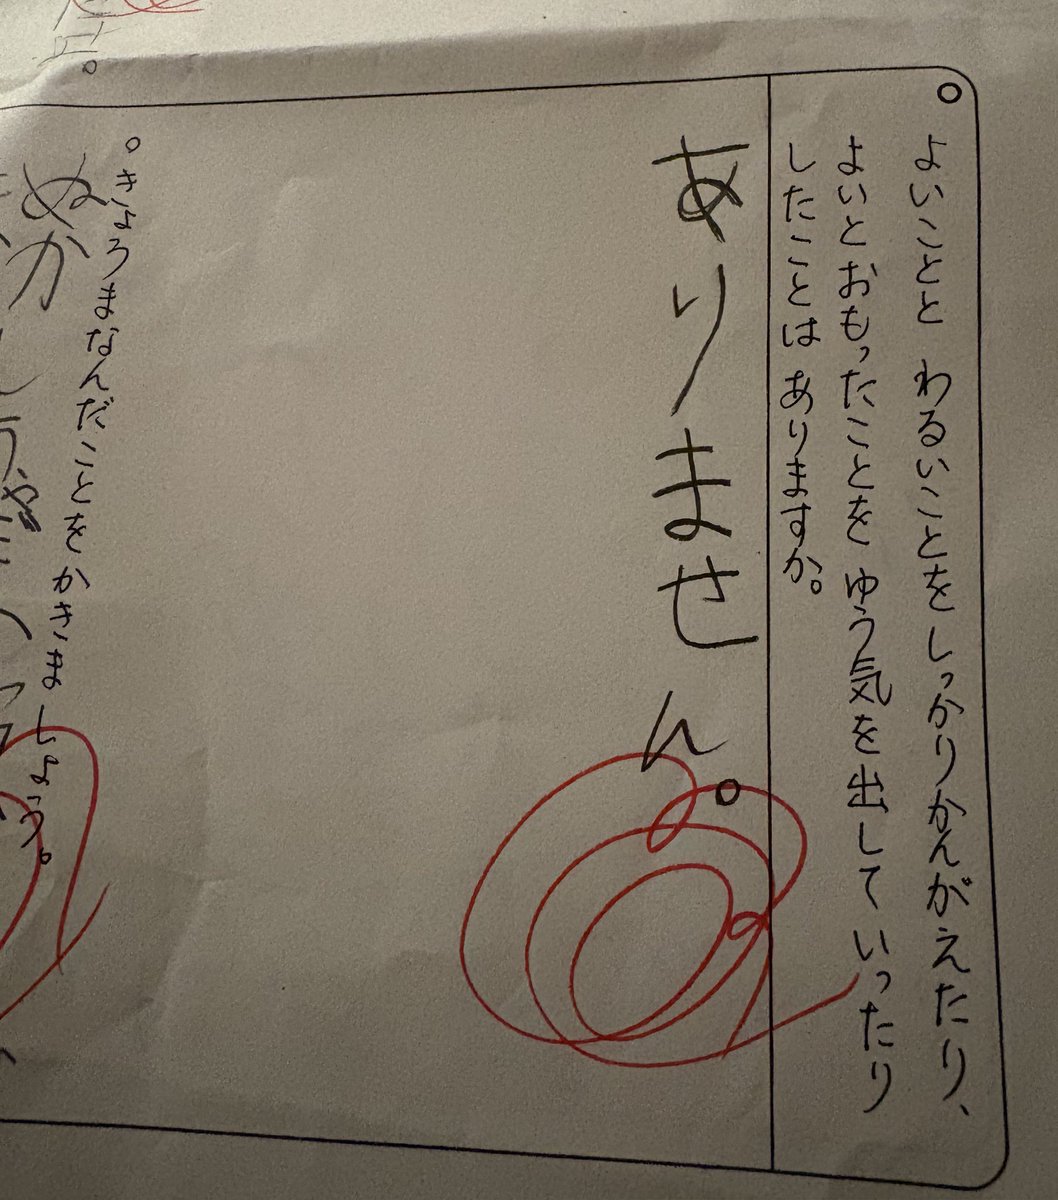 ○よいことと わるいことをしっかりかんがえたり、
よいとおもったことを ゆう気を出して いったり
したことは ありますか。
ありません。
○きょうまなんだことをかきましょう。